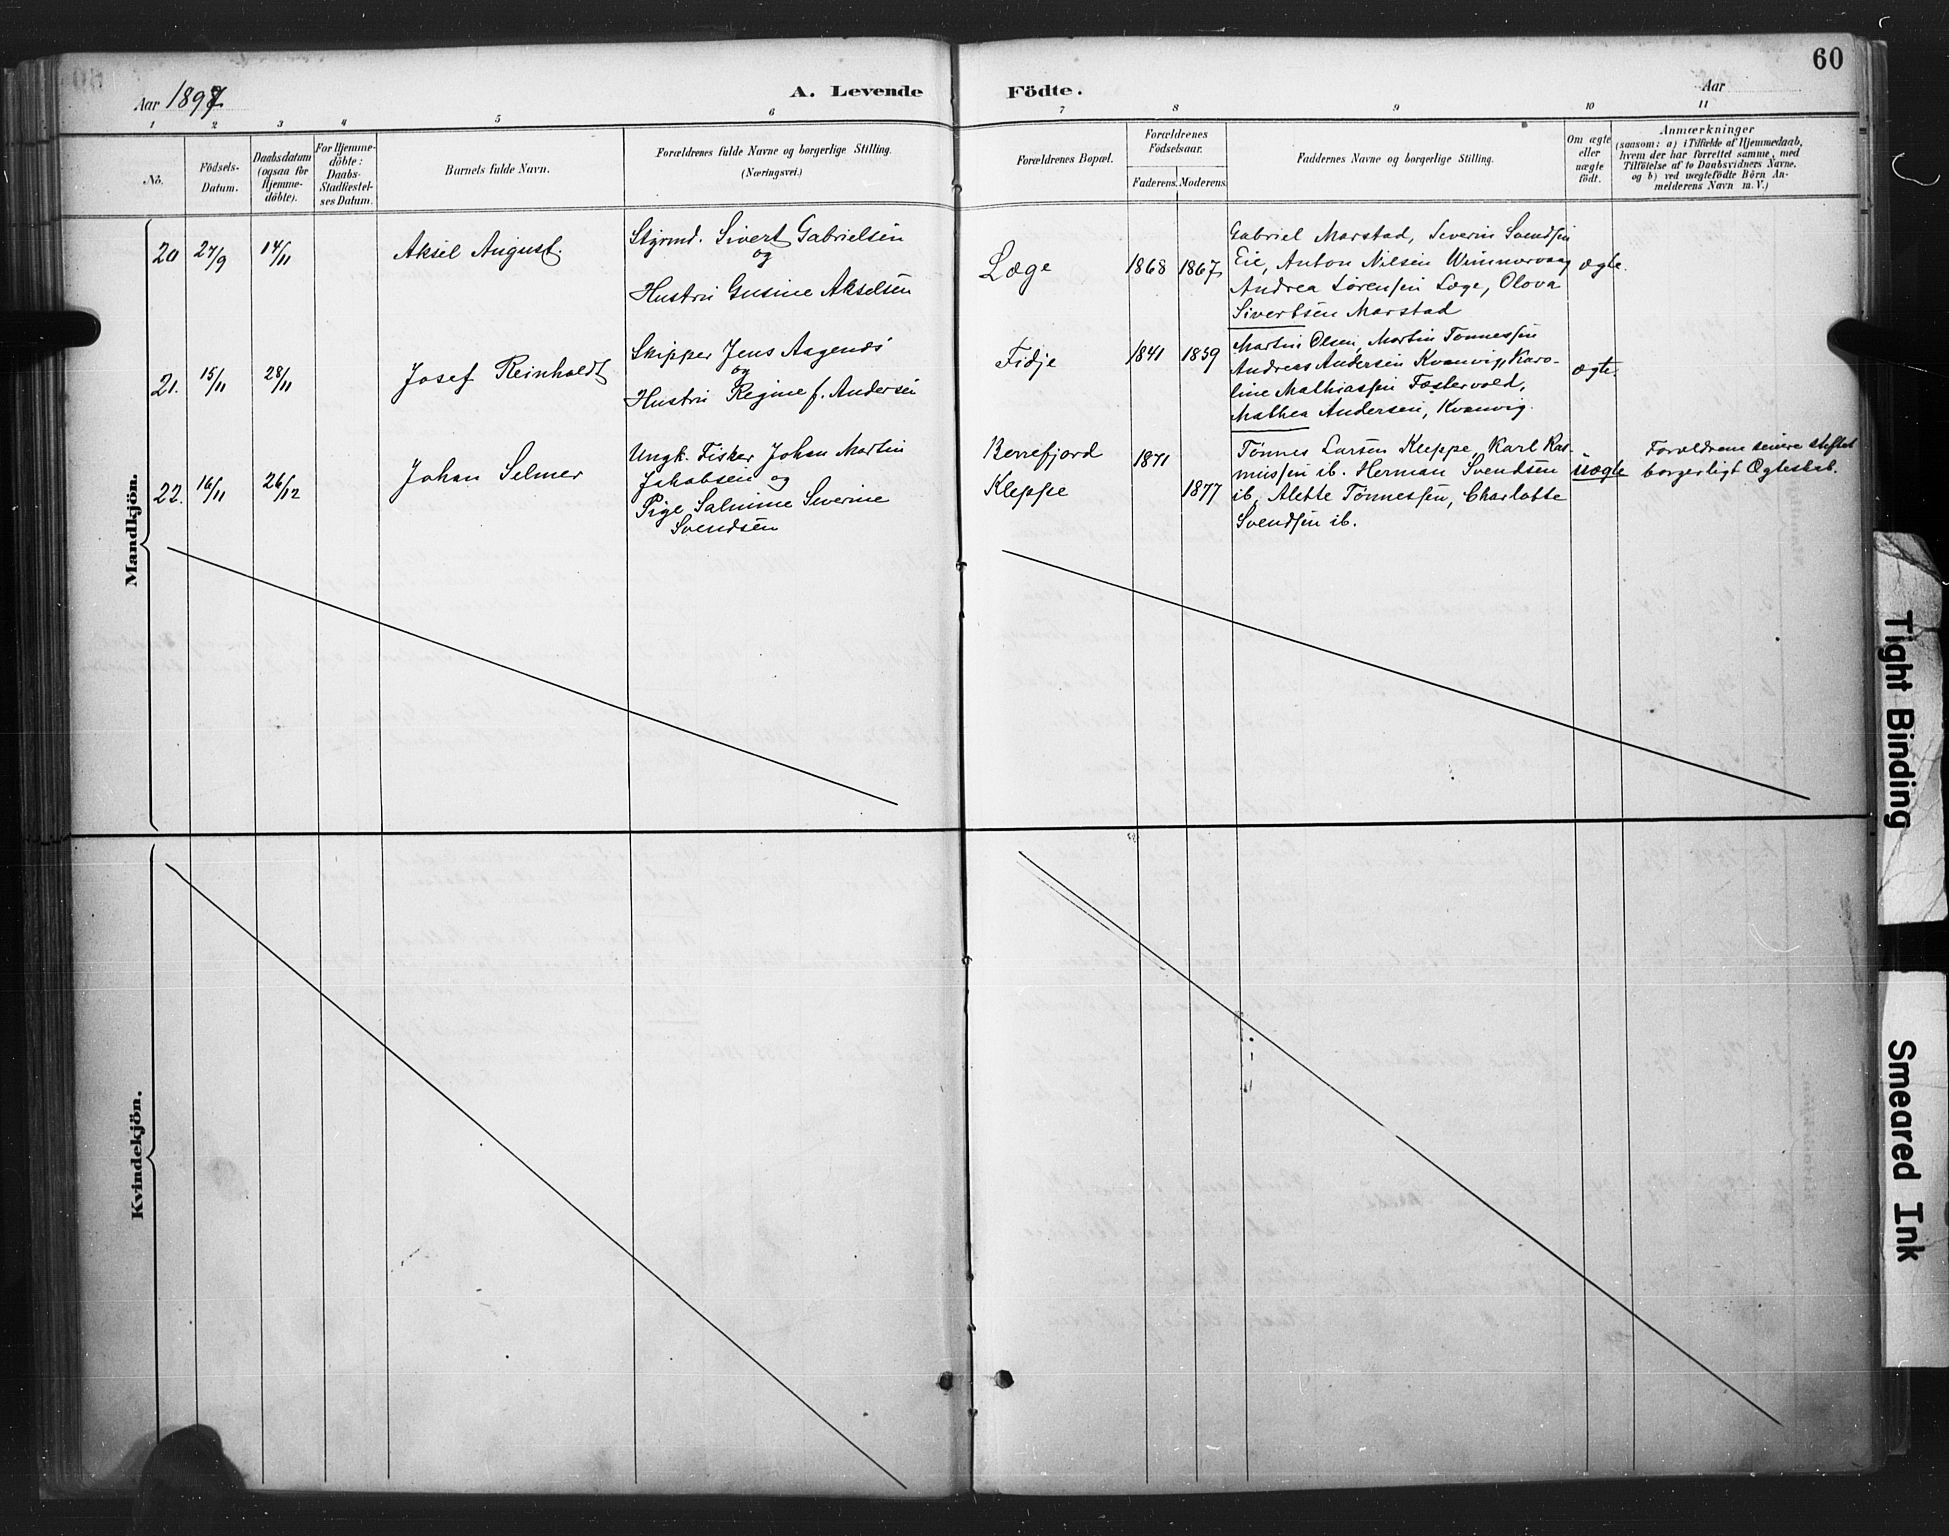 60
Aar 1897
A. Levende Födte.
Aar
1 2 3 4 5 6 7 8 9 10 11
No.
Födsels-
Datum.
Daabsdatum
(ogsaa for
Hjemme-
döbte).
For Hjemme-
döbte:
Daabs-
Stadfæstel-
ses Datum.
Barnets fulde Navn.
Forældrenes fulde Navne og borgerlige Stilling.
(Næringsvei.)
Forældrenes Bopæl.
Forældrenes
Födselsaar.
Faderens. Moderens.
Faddernes Navne og borgerlige Stilling.
Om ægte
eller
uægte
födt.
Anmærkninger
(saasom: a) i Tilfælde af Hjemmedaab,
hvem der har forrettet samme, med
Tilföielse af to Daabsvidners Navne,
og b) ved uægtefödte Börn An-
melderens Navn m. V.)
Mandkjön.
20 27/9 14/11
Aksel August.
Styrmd. Sivert Gabrielsen
og
Hustru Gusine Akselsen
Læge
1868 1867
Gabriel Marstad, Severin Svendsen
Eie, Anton Nilsen
Andrea Sørensen Læge, Olova
Sivertsen Marstad
ægte.
21. 15/11 28/11
Josef Reinholdt
Skipper Jens Aagenæs
og
Hustru Regine f. Andersen
Fidje
1841 1859
Martin Olsen, Martin Tønnessen
Andreas Andersen Kvanvig, Karo-
line Mathiassen Fæstervold,
Mathea Andersen, Kvanvig.
ægte.
22. 16/11 26/12
Johan Selmer
Ungk. Fisker Johan Martin
Jakobsen og
Pige Salmine Severine
Svendsen
Berrefjord
Kleppe
1871
1877
Tønnes Larsen Kleppe, Karl Ras-
mussen ib. Herman Svendsen
ib, Alette Tønnessen, Charlotte
Svendsen ib.
uægte
Forældrene senere stiftet
borgerligt Ægteskab.
Kvindekjön.
Tight Binding
Smeared Ink